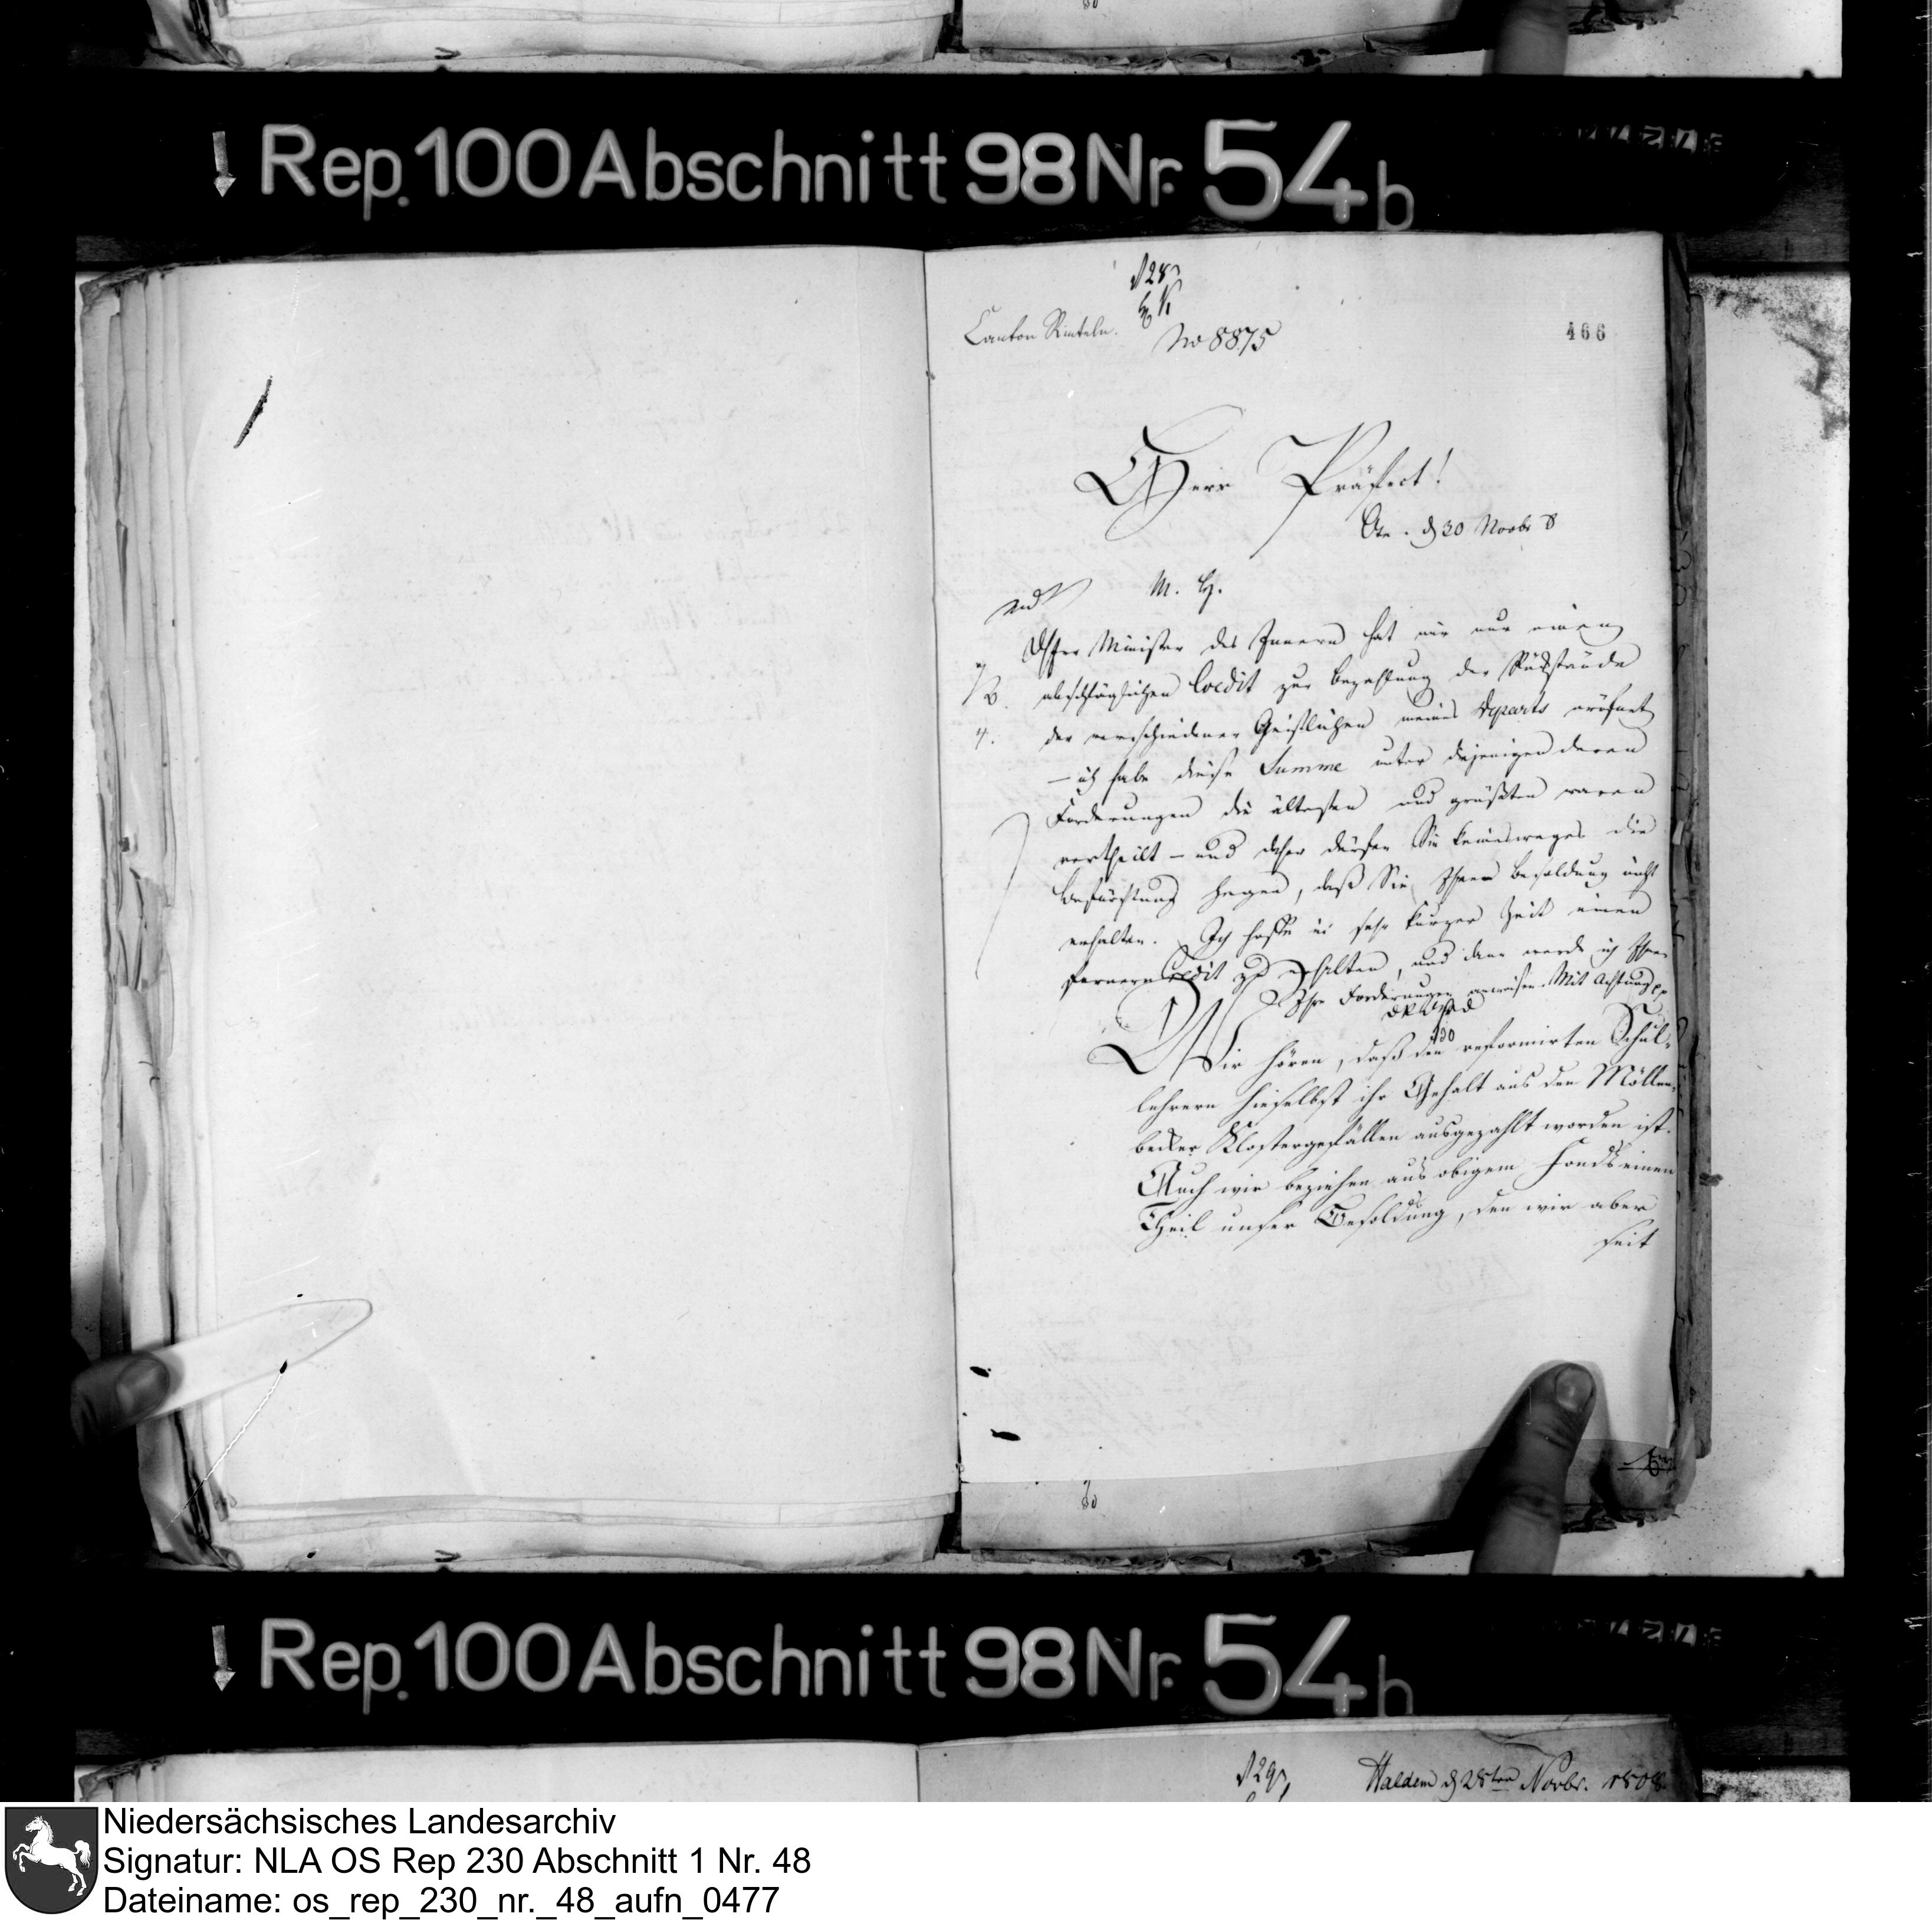 Rep. 100 Abschnitt 98 Nr. 54b
Canton Rinteln.
No 8875
466
Herr Präfect!
d 30 Novbr 8
M. H.
Der Minister des Innern hat mir nur einen
abschläglichen Credit zur Bezahlung der Rückstände
der verschiedenen Geistlichen meines Departs eröfnet
– ich habe diese Summe unter diejenigen deren
Forderungen die ältesten und größten waren
vertheilt – und daher dürfen Sie keinesweges die
Befürchtung hegen, daß Sie Ihre Besoldung nicht
erhalten. Ich hoffe in sehr kurzer Zeit einen
fernern Credit zu erhalten, und dann werde ich Ihnen
Ihre Forderungen anweisen. Mit Achtung
Wir hören, daß den reformirten Schul-
lehrern hieselbst ihr Gehalt aus den Möllen-
becker Klostergefällen ausgezahlt worden ist.
Auch wir beziehen aus obigem Fonds einen
Theil unser Besoldung, den wir aber
seit
Rep. 100 Abschnitt 98 Nr. 54b
Haldem d 28ten Novbr. 1808.
Niedersächsisches Landesarchiv
Signatur: NLA OS Rep 230 Abschnitt 1 Nr. 48
Dateiname: os_rep_230_nr._48_aufn_0477